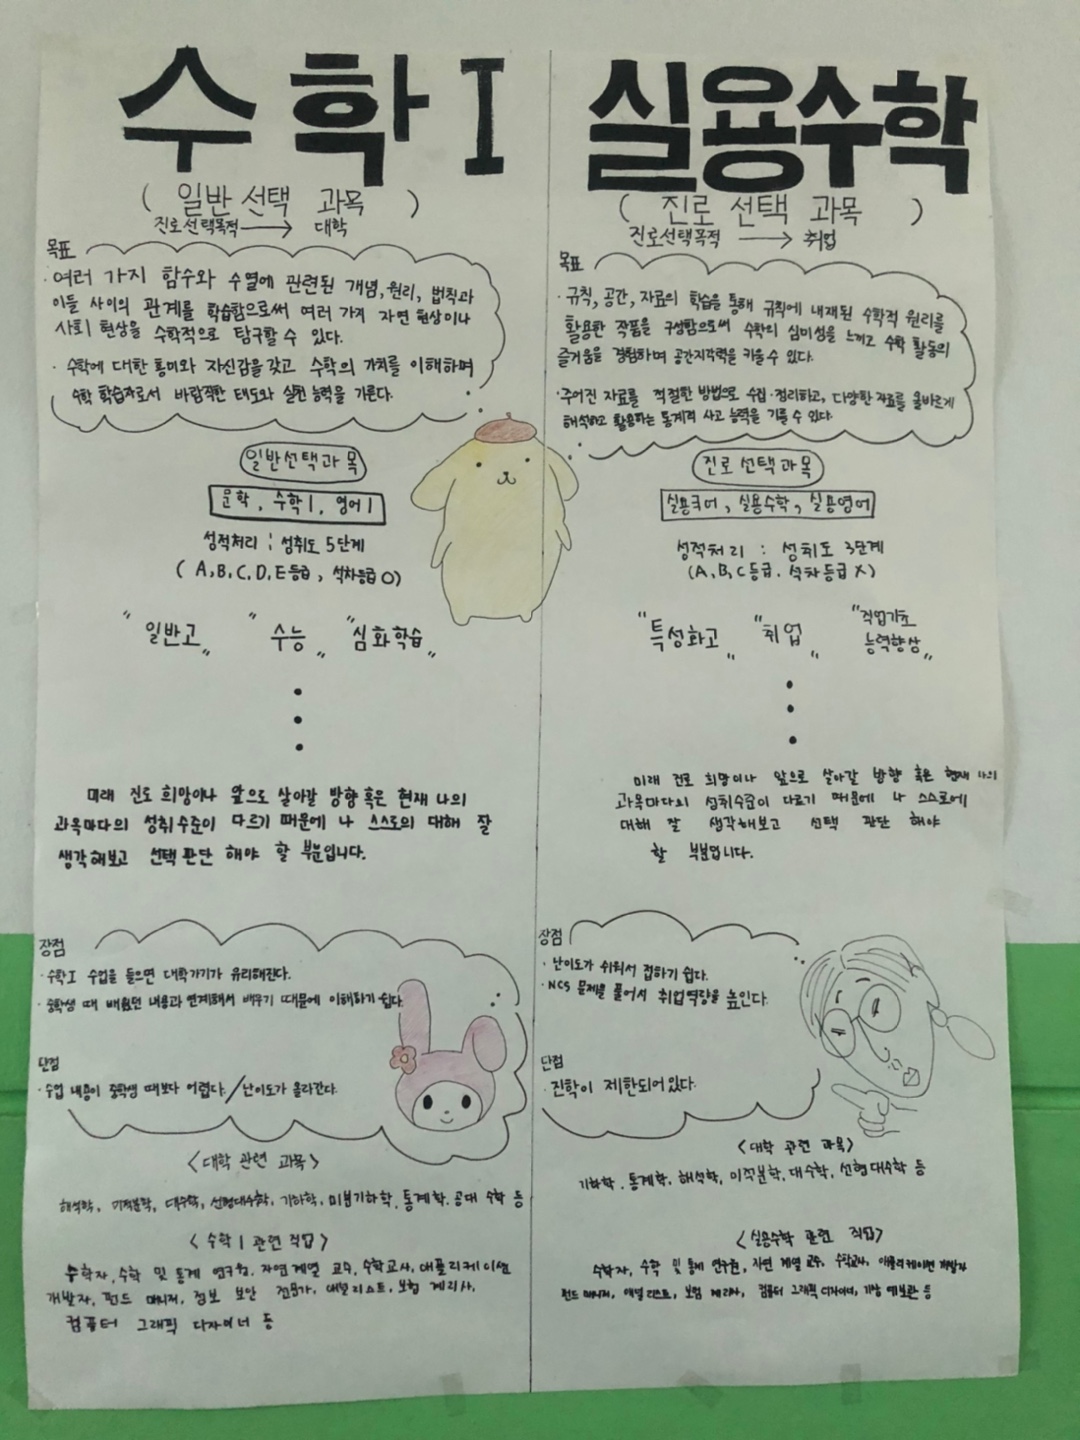 수학 I
( 일반 선택 과목 )
진로선택목적 → 대학
목표
· 여러 가지 함수와 수열에 관련된 개념, 원리, 법칙과
이들 사이의 관계를 학습함으로써 여러 가지 자연 현상이나
사회 현상을 수학적으로 탐구할 수 있다.
· 수학에 대한 흥미와 자신감을 갖고 수학의 가치를 이해하며
수학 학습자로서 바람직한 태도와 실천 능력을 기른다.
일반선택과목
문학, 수학Ⅰ, 영어Ⅰ
성적처리 : 성취도 5단계
( A, B, C, D, E등급, 석차등급 O)
"일반고" "수능" "심화학습"
미래 진로 희망이나 앞으로 살아갈 방향 혹은 현재 나의
과목마다의 성취수준이 다르기 때문에 나 스스로의 대해 잘
생각해보고 선택 판단 해야 할 부분입니다.
장점
· 수학Ⅰ 수업을 들으면 대학가기가 유리해진다.
· 중학생 때 배웠던 내용과 연계해서 배우기 때문에 이해하기 쉽다.
단점
· 수업 내용이 중학생 때보다 어렵다. / 난이도가 올라간다.
<대학 관련 과목>
해석학, 미적분학, 대수학, 선형대수학, 기하학, 미분기하학, 통계학, 공대 수학 등
<수학Ⅰ 관련 직업>
수학자, 수학 및 통계 연구원, 자연계열 교수, 수학교사, 애플리케이션
개발자, 펀드 매니저, 정보 보안 전문가, 애널리스트, 보험 계리사,
컴퓨터 그래픽 디자이너 등
실용수학
( 진로 선택 과목 )
진로선택목적 → 취업
목표
· 규칙, 공간, 자료의 학습을 통해 규칙에 내재된 수학적 원리를
활용한 작품을 구성함으로써 수학의 심미성을 느끼고 수학 활동의
즐거움을 경험하며 공간지각력을 키울 수 있다.
· 주어진 자료를 적절한 방법으로 수집·정리하고, 다양한 자료를 올바르게
해석하고 활용하는 통계적 사고 능력을 기를 수 있다.
진로선택과목
실용국어, 실용수학, 실용영어
성적처리 : 성취도 3단계
(A, B, C등급. 석차등급 X)
"특성화고" "취업" "직업기초
능력향상"
미래 진로 희망이나 앞으로 살아갈 방향 혹은 현재 나의
과목마다의 성취수준이 다르기 때문에 나 스스로에
대해 잘 생각해보고 선택 판단 해야
할 부분입니다.
장점
· 난이도가 쉬워서 접하기 쉽다.
· NCS 문제를 풀어서 취업역량을 높인다.
단점
· 진학이 제한되어있다.
<대학 관련 과목>
기하학, 통계학, 해석학, 미적분학, 대수학, 선형대수학 등
<실용수학 관련 직업>
수학자, 수학 및 통계 연구원, 자연 계열 교수, 수학교사, 애플리케이션 개발자
펀드 매니저, 애널리스트, 보험 계리사, 컴퓨터 그래픽 디자이너, 기상 예보관 등